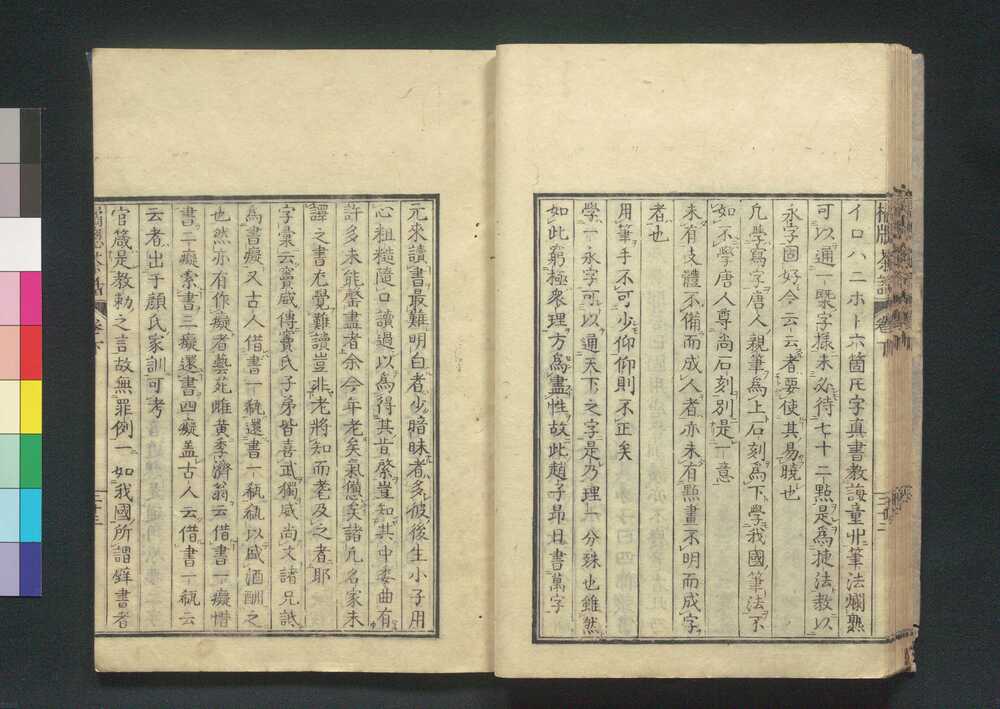 橘牕茶話 卷下
イロハニホト六箇瓦字真書教誨童丱筆法爛熟
可以通一槩字樣未必待七十二點是爲捷法教以
永字固好今云云者要使其易曉也
凢學寫字唐人親筆爲上石刻爲下學我國筆法不
如不學唐人尊尚石刻別是一意
未有支體不備而成人者亦未有點畫不明而成字
者也
用筆手不可少仰仰則不正矣
學一永字可以通天下之字是乃理一分殊也雖然
如此窮極衆理方爲盡性故此趙子昂日書萬字
元來讀書最難明白者少暗昧者多彼後生小子用
心粗糙隨口讀過以爲得其旨綮豈知其中委曲有
許多未能罄盡者余今年老矣氣憊矣諸凢名家未
譯之書尢覺難讀豈非老將知而耄及之者耶
字彙云竇威傳竇氏子弟皆喜武獨威尚文諸兄詆
爲書癡又古人借書一瓻還書一瓻瓻以盛酒酬之
也然亦有作癡者藝苑雌黄季濟翁云借書一癡惜
書二癡索書三癡還書四癡盖古人云借書一瓻云
云者出于顔氏家訓可考
官箴是教勅之言故無罪例一如我國所謂辟書者
橘牕茶話